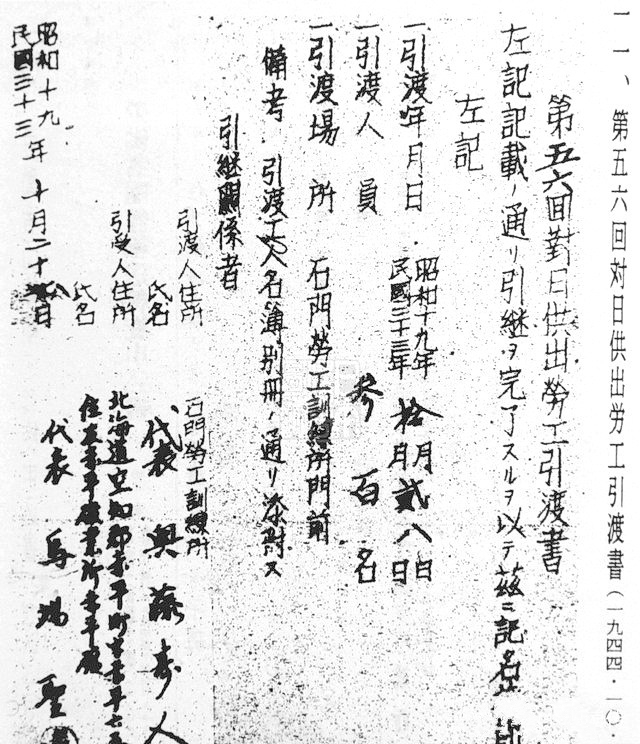 一一、第五六回対日供出労工引渡書(一九四四・一〇・
第五六回對日供出勞工引渡書
左記記載ノ通リ引継ヲ完了スルヲ以テ茲ニ記名
左記
一引渡年月日 昭和十九年 民國三十三年 拾月貳八日
一引渡人員 参百名
一引渡場所 石門勞工訓練所門前
備考 引渡工人名簿別冊ノ通リ添附ス
引継關係者
引渡人住所 石門勞工訓練所
氏名 代表
引受人住所 北海道空知郡赤平町字赤平七
住友赤平礦業所赤平礦
氏名 代表
昭和十九
民國三十三年十月二十日